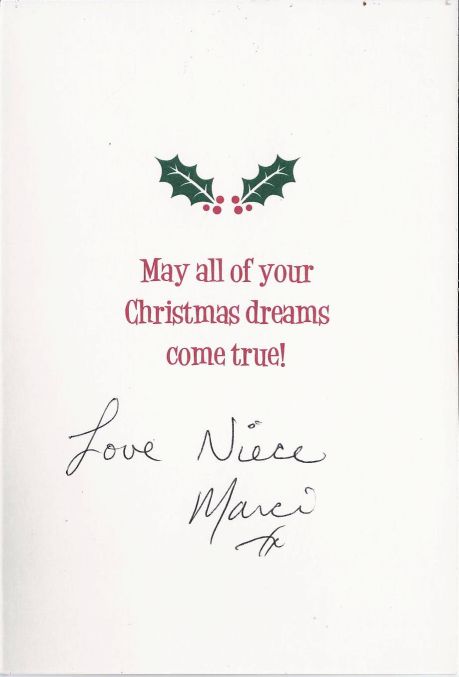 May all of your
Christmas dreams
come true!
Love Niece
Marci